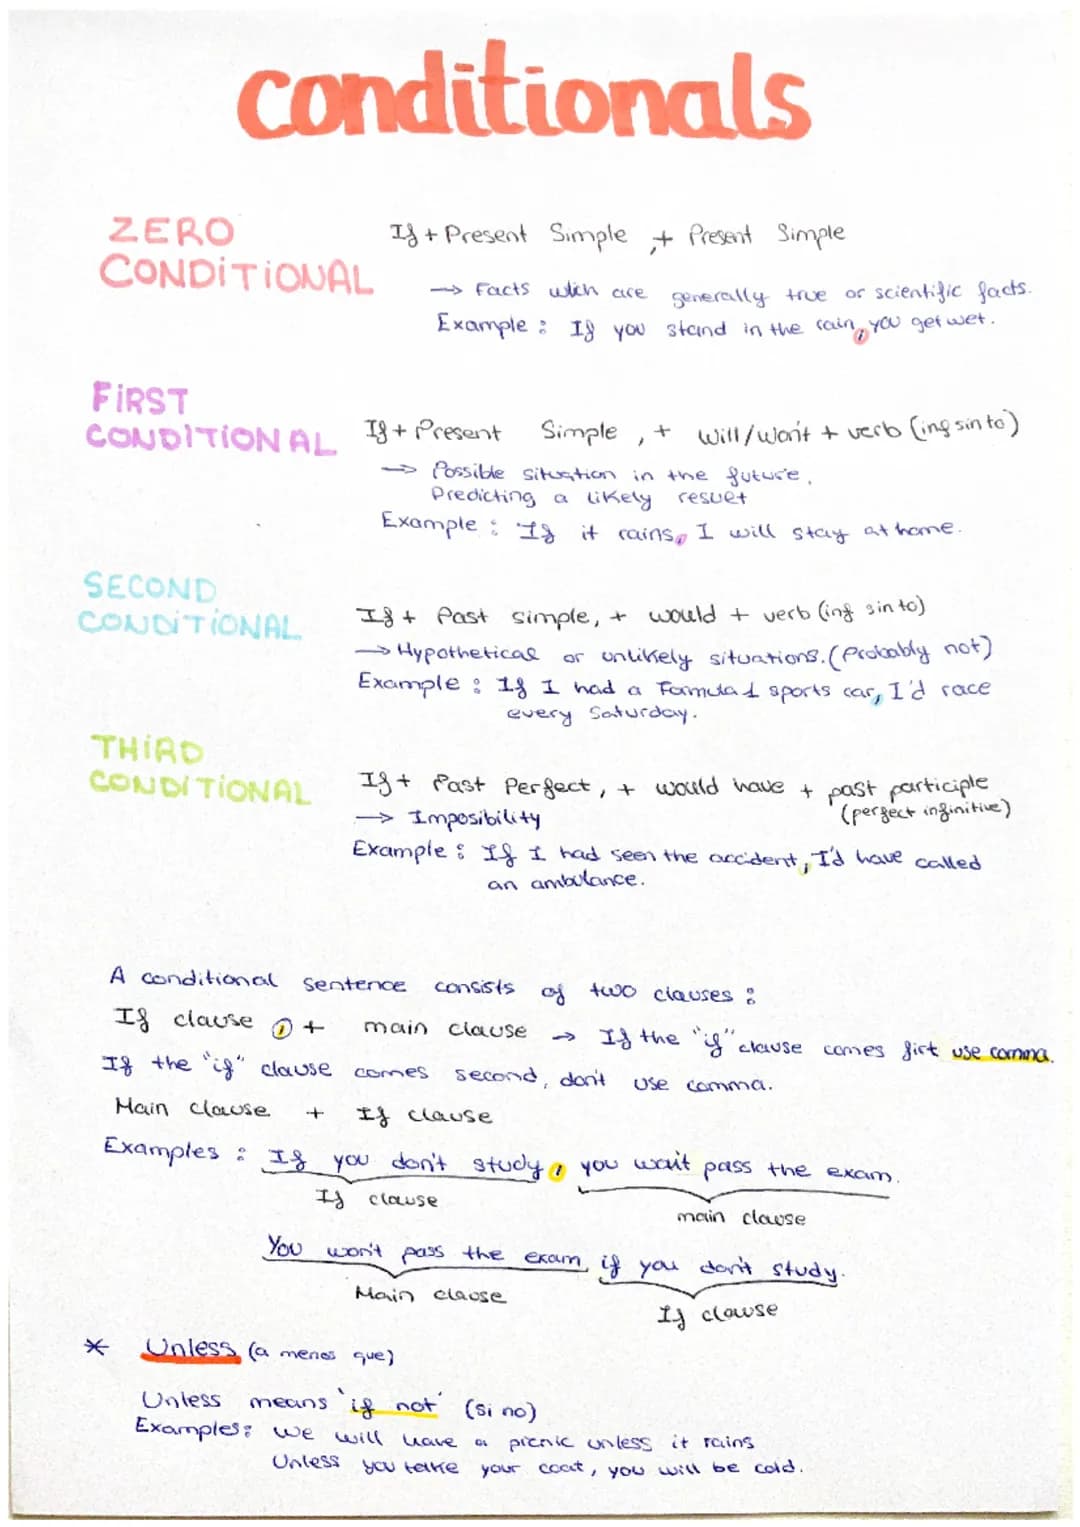 conditionals
ZERO
CONDITIONAL
If + Present Simple , + Present Simple
→ Facts wich are generally true or scientific facts.
Example : If you stand in the rain, you get wet.
FIRST
CONDITIONAL
If + Present Simple , + will/won't + verb (ing sin to)
→ Possible situation in the future.
Predicting a likely result
Example : If it rains, I will stay at home.
SECOND
CONDITIONAL
If + Past simple, + would + verb (inf sin to)
→ Hypothetical or unlikely situations. (Probably not)
Example : If I had a Formula 1 sports car, I'd race
every Saturday.
THIRD
CONDITIONAL
If + Past Perfect, + would have + past participle
(perfect infinitive)
→ Imposibility
Example : If I had seen the accident, I'd have called
an ambulance.
A conditional sentence consists of two clauses :
If clause , + main clause → If the "if" clause comes firt use comma.
If the "if" clause comes second, don't use comma.
Main clause + If clause
Examples : If you don't study, you won't pass the exam.
If clause
main clause
You won't pass the exam if you don't study.
Main clause
If clause
* Unless (a menos que)
Unless means 'if not' (si no)
Examples: We will have a picnic unless it rains
Unless you take your coat, you will be cold.